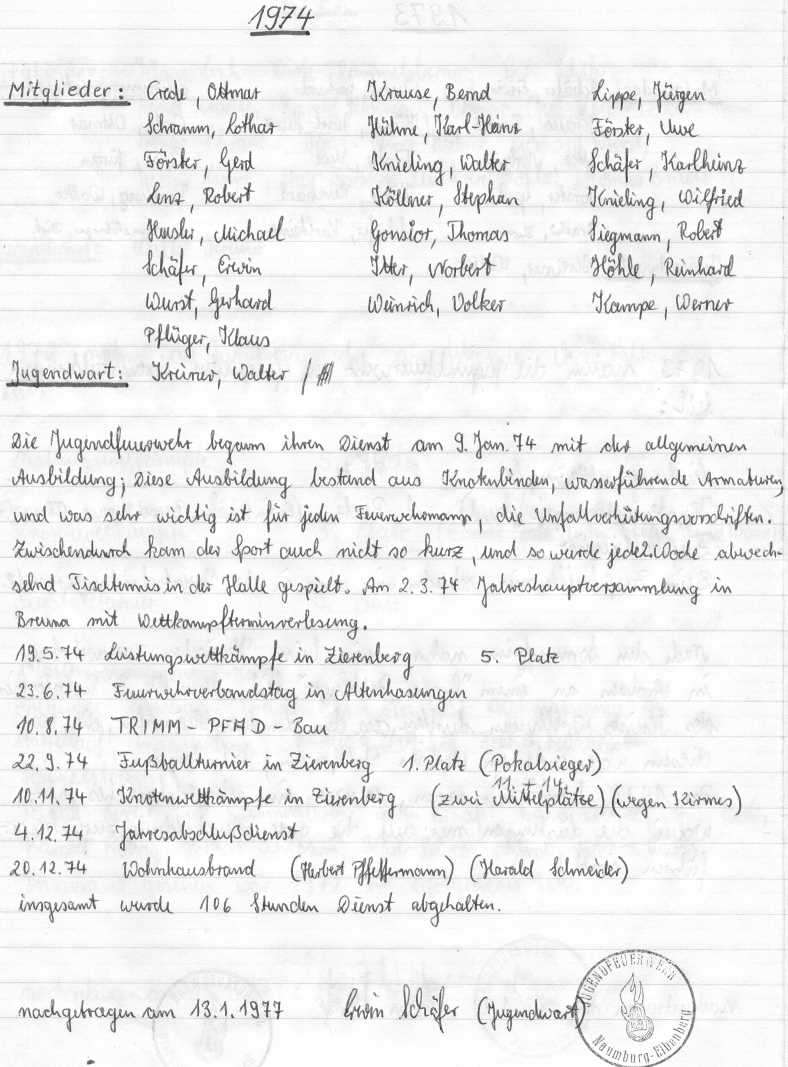 1974
Mitglieder: Crede, Ottmar Krause, Bernd Lippe, Jürgen
Schramm, Lothar Kühne, Karl-Heinz Förster, Uwe
Förster, Gerd Knieling, Walter Schäfer, Karlheinz
Lenz, Robert Köllner, Stephan Knieling, Wilfried
Michael Gonsior, Thomas Siegmann, Robert
Schäfer, Erwin Itter, Norbert Höhle, Reinhard
Wurst, Gerhard Weinrich, Volker Kampe, Werner
Pflüger, Klaus
Jugendwart: Kreiner, Walter /
Die Jugendfeuerwehr begann ihren Dienst am 9. Jan. 74 mit der allgemeinen
Ausbildung; Diese Ausbildung bestand aus Knotenbinden, wasserführende Armaturen,
und was sehr wichtig ist für jeden Feuerwehrmann, die Unfallverhütungsvorschriften.
Zwischendurch kam der Sport auch nicht so kurz, und so wurde jede 2. Woche abwech-
selnd Tischtennis in der Halle gespielt. Am 2.3.74 Jahreshauptversammlung in
Breuna mit Wettkampfterminverlesung.
19.5.74 Leistungswettkämpfe in Zierenberg 5. Platz
23.6.74 Feuerwehrverbandstag in Altenhasungen
10.8.74 TRIMM-PFAD-Bau
22.9.74 Fußballturnier in Zierenberg 1. Platz (Pokalsieger)
11 + 14
10.11.74 Knotenwettkämpfe in Zierenberg (zwei Mittelplätze) (wegen Kirmes)
4.12.74 Jahresabschlußdienst
20.12.74 Wohnhausbrand (Herbert Pfeffermann) (Harald Schneider)
insgesamt wurde 106 Stunden Dienst abgehalten.
nachgetragen am 13.1.1977 Erwin Schäfer (Jugendwart)
JUGENDFEUERWEHR
Naumburg-Elbenberg